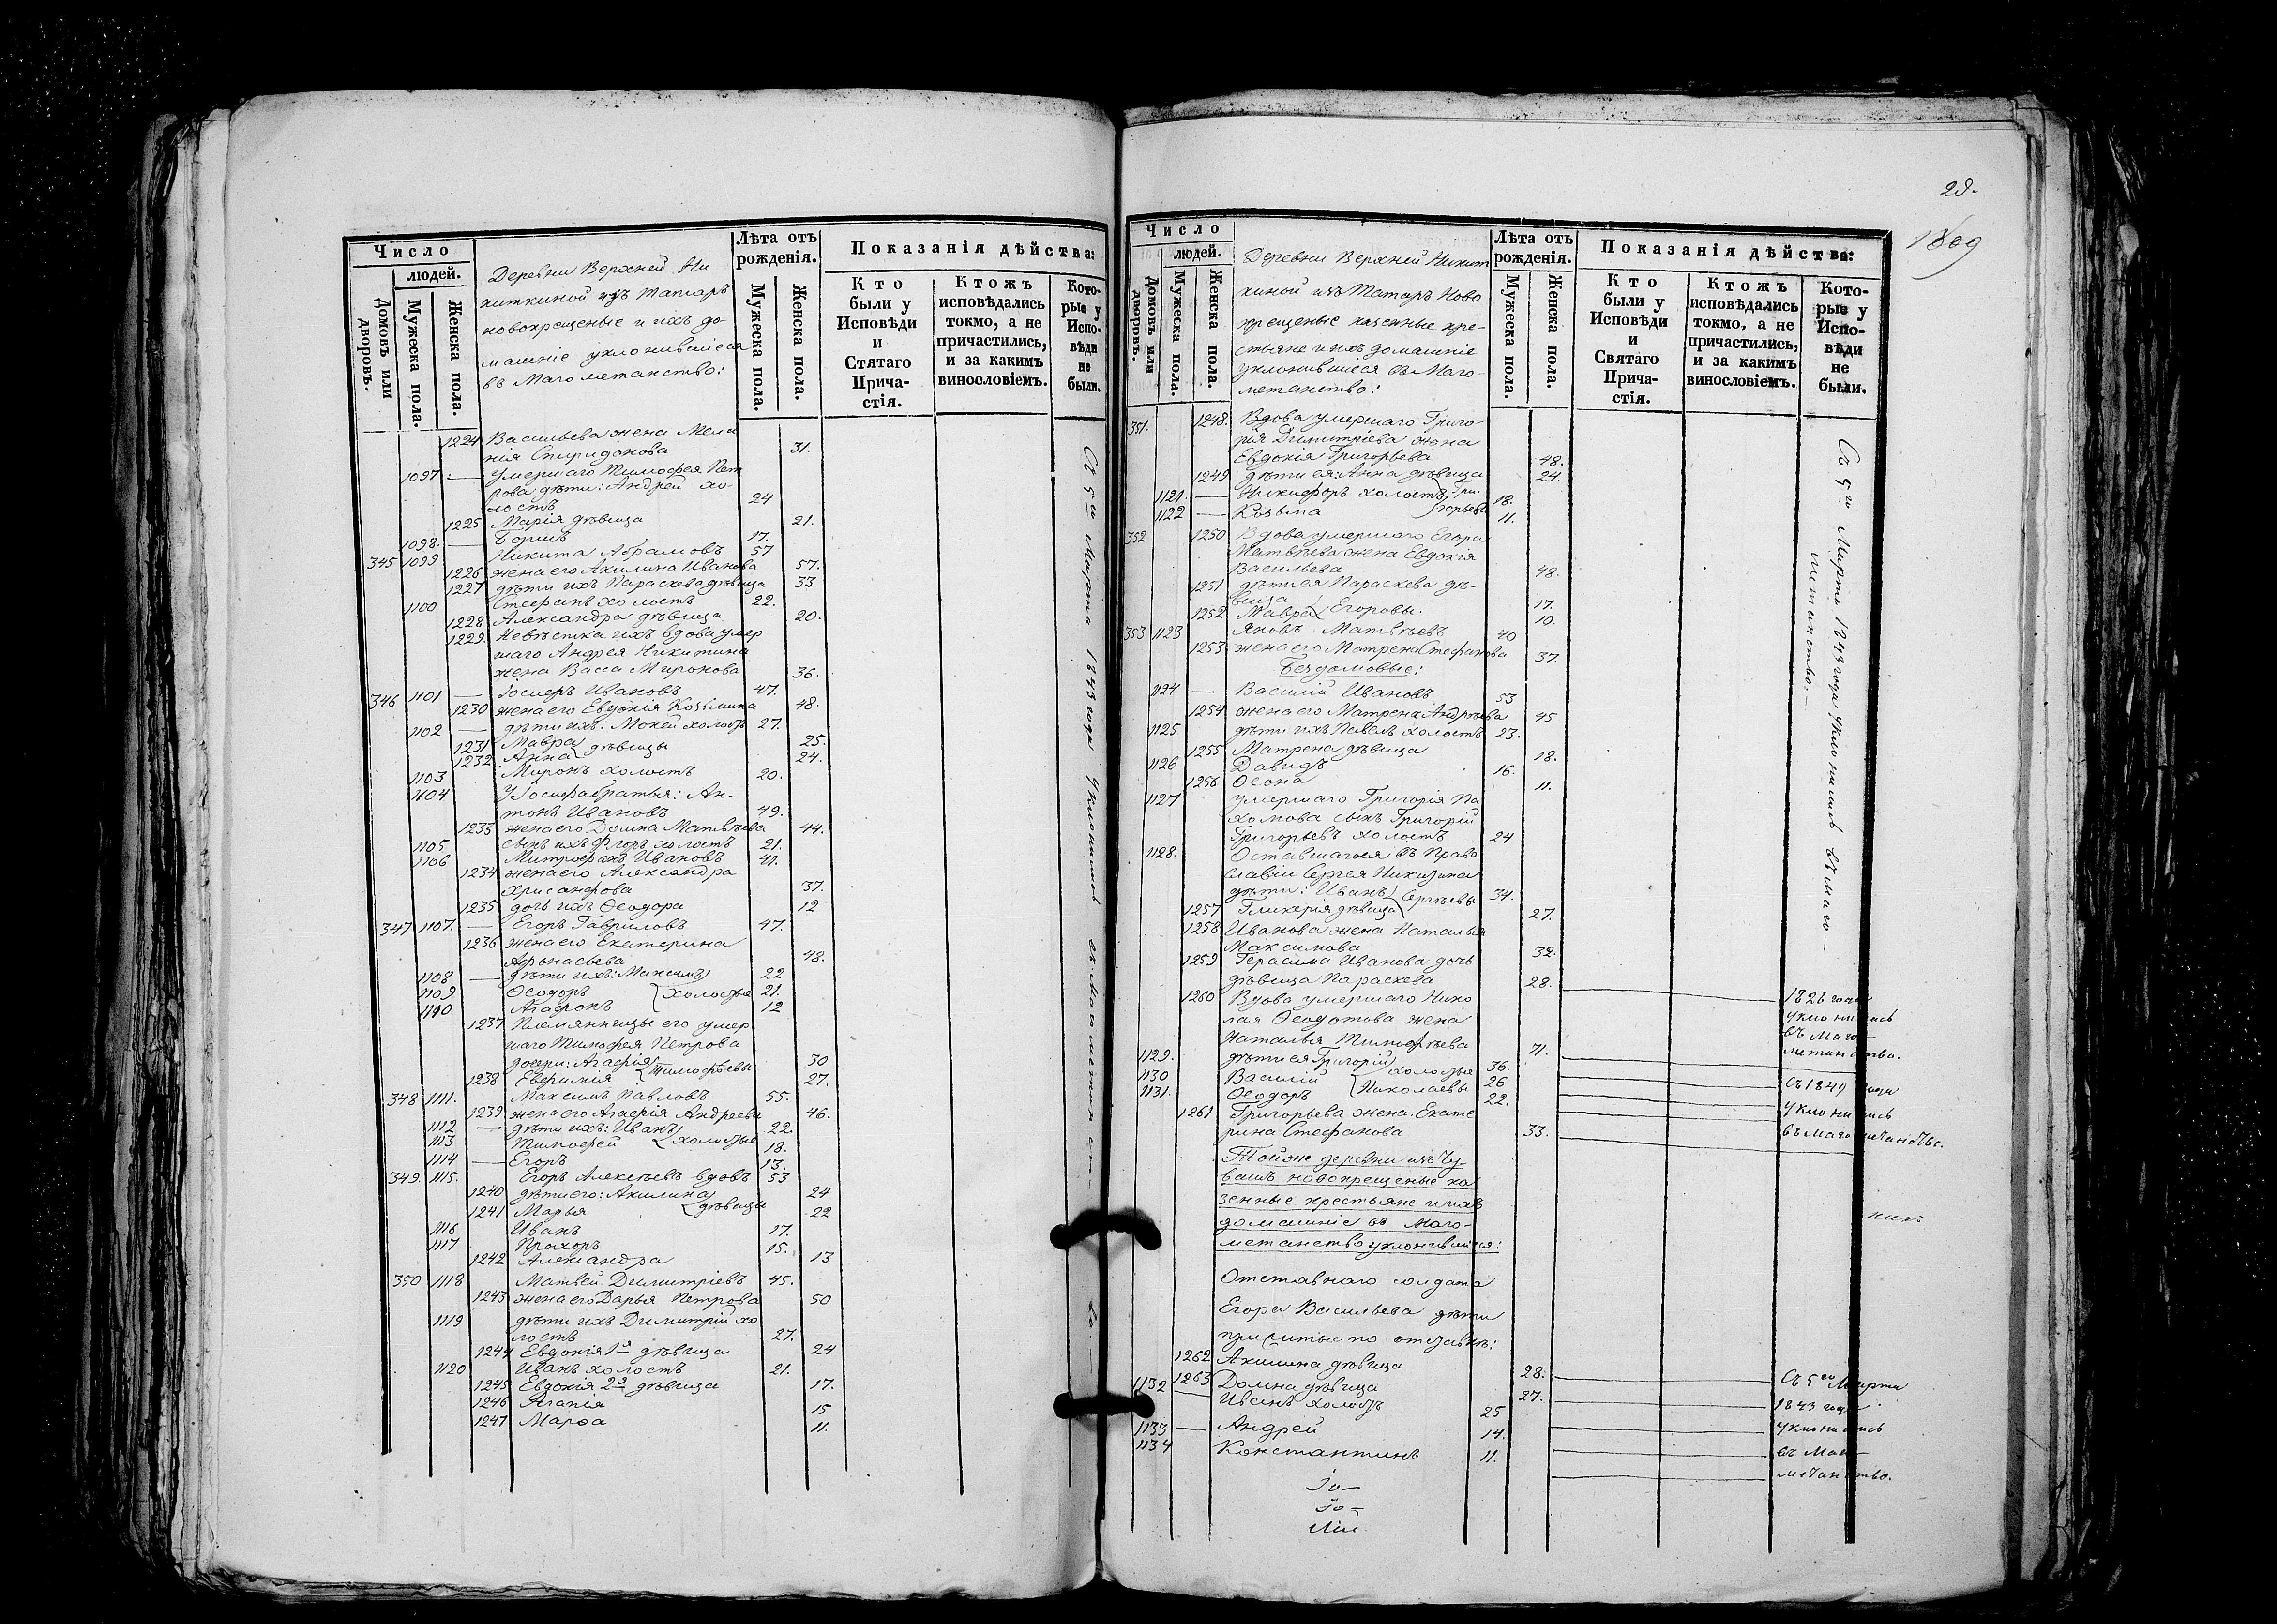 Число
людей.
Домовъ или дворовъ.
Мужеска пола.
Женска пола.
Деревни Верхней Ни
киткиной изъ татаръ
новокрещеные и ихъ до-
машніе уклонившіеся
въ Магометанство:
Лѣта отъ рожденія.
Мужеска пола.
Женска пола.
Показанія дѣйства:
Кто были у Исповѣди и Стятаго Прича- стія.
Ктожъ исповѣдались токмо, а не причастились, и за какимъ винословіемъ.
Кото- рые у Испо- вѣди не были.
1224 Васильева жена Мела
нія Спиридонова 31.
1097 — Умершаго Тимофея Пет
рова дѣти: Андрей хо-
лостъ 24
1225 Марія дѣвица 21.
1098. — 17.
345 1099 Никита Абрамовъ 57
1226 жена его Акилина Иванова 57.
1227 дѣти ихъ Параскева дѣвица 33
1100 Стефанъ холостъ 22.
1228 Александра дѣвица 20.
1229 Невѣстка ихъ вдова умер
шаго Андрея Никитина
жена Васса Миронова 36.
346 1101 — Іосифъ Ивановъ 47.
1230 жена его Евдокія Козьмина 48.
1102 — дѣти ихъ: Мокей холостъ 27.
1231 Мавра 25.
дѣвицы
1232 Анна 24.
1103 Миронъ холостъ 20.
1104 У Іосифа братья: Ан-
тонъ Ивановъ 49.
1233 жена его Домна Матвѣева 44.
1105 сынъ ихъ Флоръ холостъ 21.
1106 Митрофанъ Ивановъ 41.
1234 жена его Александра
Хрисанфова 37.
1235 дочь ихъ Ѳеодора 12
347 1107. — Егоръ Гавриловъ 47.
1236 жена его Екатерина
Афонасьева 48.
1108 — дѣти ихъ: Максимъ 22
1109 Ѳеодоръ холостые 21.
1110 Агафонъ 12
1237 Племянницы его умер
шаго Тимофея Петрова
дочери: Агафія 30
Тимофѣевы
1238 Евфимія 27.
348 1111. Максимъ Павловъ 55.
1239 жена его Агафія Андреева 46.
1112 — дѣти ихъ: Иванъ 22.
холостые
1113 Тимофей 18.
1114 — Егоръ 13.
349. 1115. Егоръ Алексѣевъ вдовъ 53
1240 дѣти его: Акилина 24
дѣвицы
1241 Марья 22
1116 Иванъ 17.
1117 Прохоръ 15.
1242 Александра 13
350 1118 Матвей Димитріевъ 45.
1243 жена его Дарья Петрова 50
1119 дѣти ихъ Димитрій хо
лостъ 27.
1244 Евдокія 1я дѣвица 24
1120 Иванъ холостъ 21.
1245 Евдокія 2я дѣвица 17.
1246 Агапія 15
1247 Марѳа 11.
Съ 5го Марта 1843 года уклонились въ Магометанство. —
29.
Число
людей.
Домовъ или дворовъ.
Мужеска пола.
Женска пола.
Деревни Верхней Никит
киной изъ Татаръ Ново
крещеные казенные кре-
стьяне и ихъ домашніе
уклонившіеся въ Маго-
метанство:
Лѣта отъ рожденія.
Мужеска пола.
Женска пола.
Показанія дѣйства:
Кто были у Исповѣди и Святаго Прича- стія.
Ктожъ исповѣдались токмо, а не причастились, и за какимъ винословіемъ.
Кото- рые у Испо- вѣди не были.
351. 1248. Вдова умершаго Григо-
рія Димитріева жена
Евдокія Григорьева 48.
1249 дѣти ея: Анна дѣвица 24.
1121. — Никифоръ холостъ Гри- 18.
1122 — Козьма горьевы 11.
352 1250 Вдова умершаго Егора
Матвѣева жена Евдокія
Васильева 48.
1251 дѣти ея Параскева дѣ-
вица 17.
1252 Мавра Егоровы. 10.
353 1123 Яковъ Матвѣевъ 40
1253 жена его Матрена Стефанова 37.
Бездомовые:
1124 — Василій Ивановъ 53
1254 жена его Матрена Андрѣева 45
1125 дѣти ихъ Павелъ холостъ 23.
1255 Матрена дѣвица 18.
1126 Давидъ 16.
1256 11.
1127 умершаго Григорія Па
хомова сынъ Григорій
Григорьевъ холостъ 24
1128. Оставшагося въ Право
славіи Сергея Никитина
дѣти: Иванъ 34.
Сергѣевы
1257 Гликерія дѣвица 27.
1258 Иванова жена Наталья
Максимова 32.
1259 Герасима Иванова дочь
дѣвица Параскева 28.
1260 Вдова умершаго Нико
лая Ѳедотова жена
Наталья Тимофѣева 71.
1129. дѣти ея Григорій 36.
холостые
1130 Василій 26
Николаевы
1131. Ѳеодоръ 22.
1261 Григорьева жена Екате
рина Стефанова 33.
Съ 5го Марта 1843 года уклонились въ Маго—
метанство. —
1826 года
уклонилась
въ Маго—
метанство.
Съ 1849 года
уклонились
въ Магометанство.
Той же деревни изъ Чу
вашъ новокрещеные ка
зенные крестьяне и ихъ
домашніе въ Маго-
метанство уклонившіеся:
Отставнаго солдата
Егора Васильева дѣти
прижитые по отставкѣ:
1262 Акилина дѣвица 28.
1263 Домна дѣвица 27.
1132 — Иванъ холостъ 25
1133 — Андрей 14.
1134 Константинъ 11.
Съ 5го Марта
1843 года
уклонились
въ Маго—
метанство.